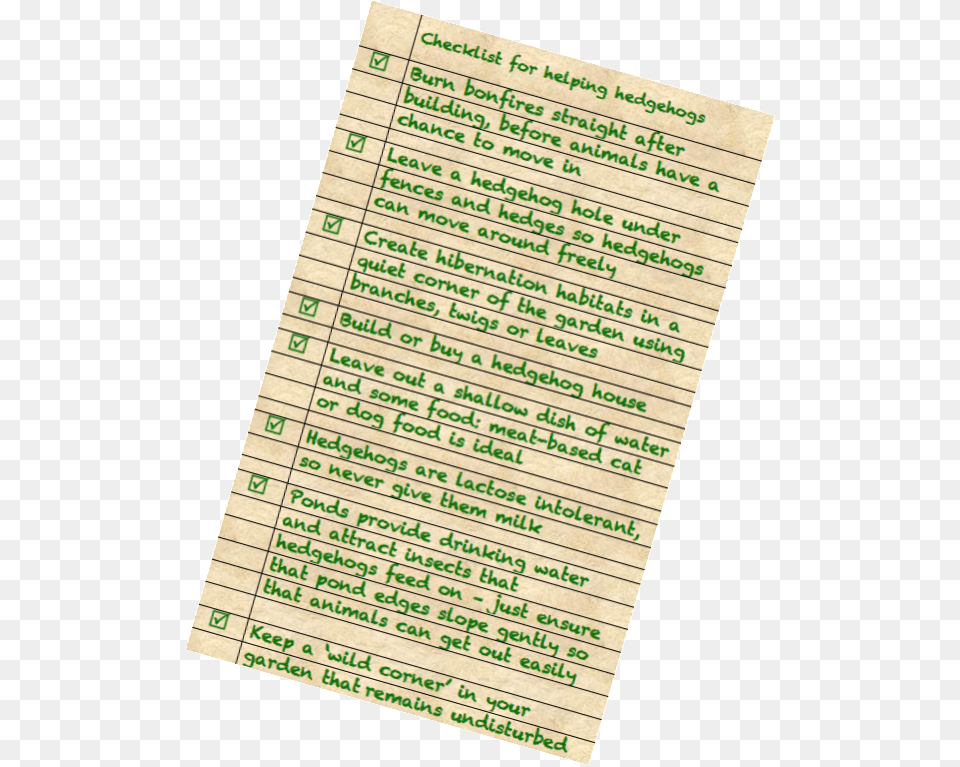 Checklist for helping hedgehogs
☑ Burn bonfires straight after
building, before animals have a
chance to move in
☑ Leave a hedgehog hole under
fences and hedges so hedgehogs
can move around freely
☑ Create hibernation habitats in a
quiet corner of the garden using
branches, twigs or leaves
☑ Build or buy a hedgehog house
☑ Leave out a shallow dish of water
and some food: meat-based cat
or dog food is ideal
☑ Hedgehogs are lactose intolerant,
so never give them milk
☑ Ponds provide drinking water
and attract insects that
hedgehogs feed on - just ensure
that pond edges slope gently so
that animals can get out easily
☑ Keep a 'wild corner' in your
garden that remains undisturbed